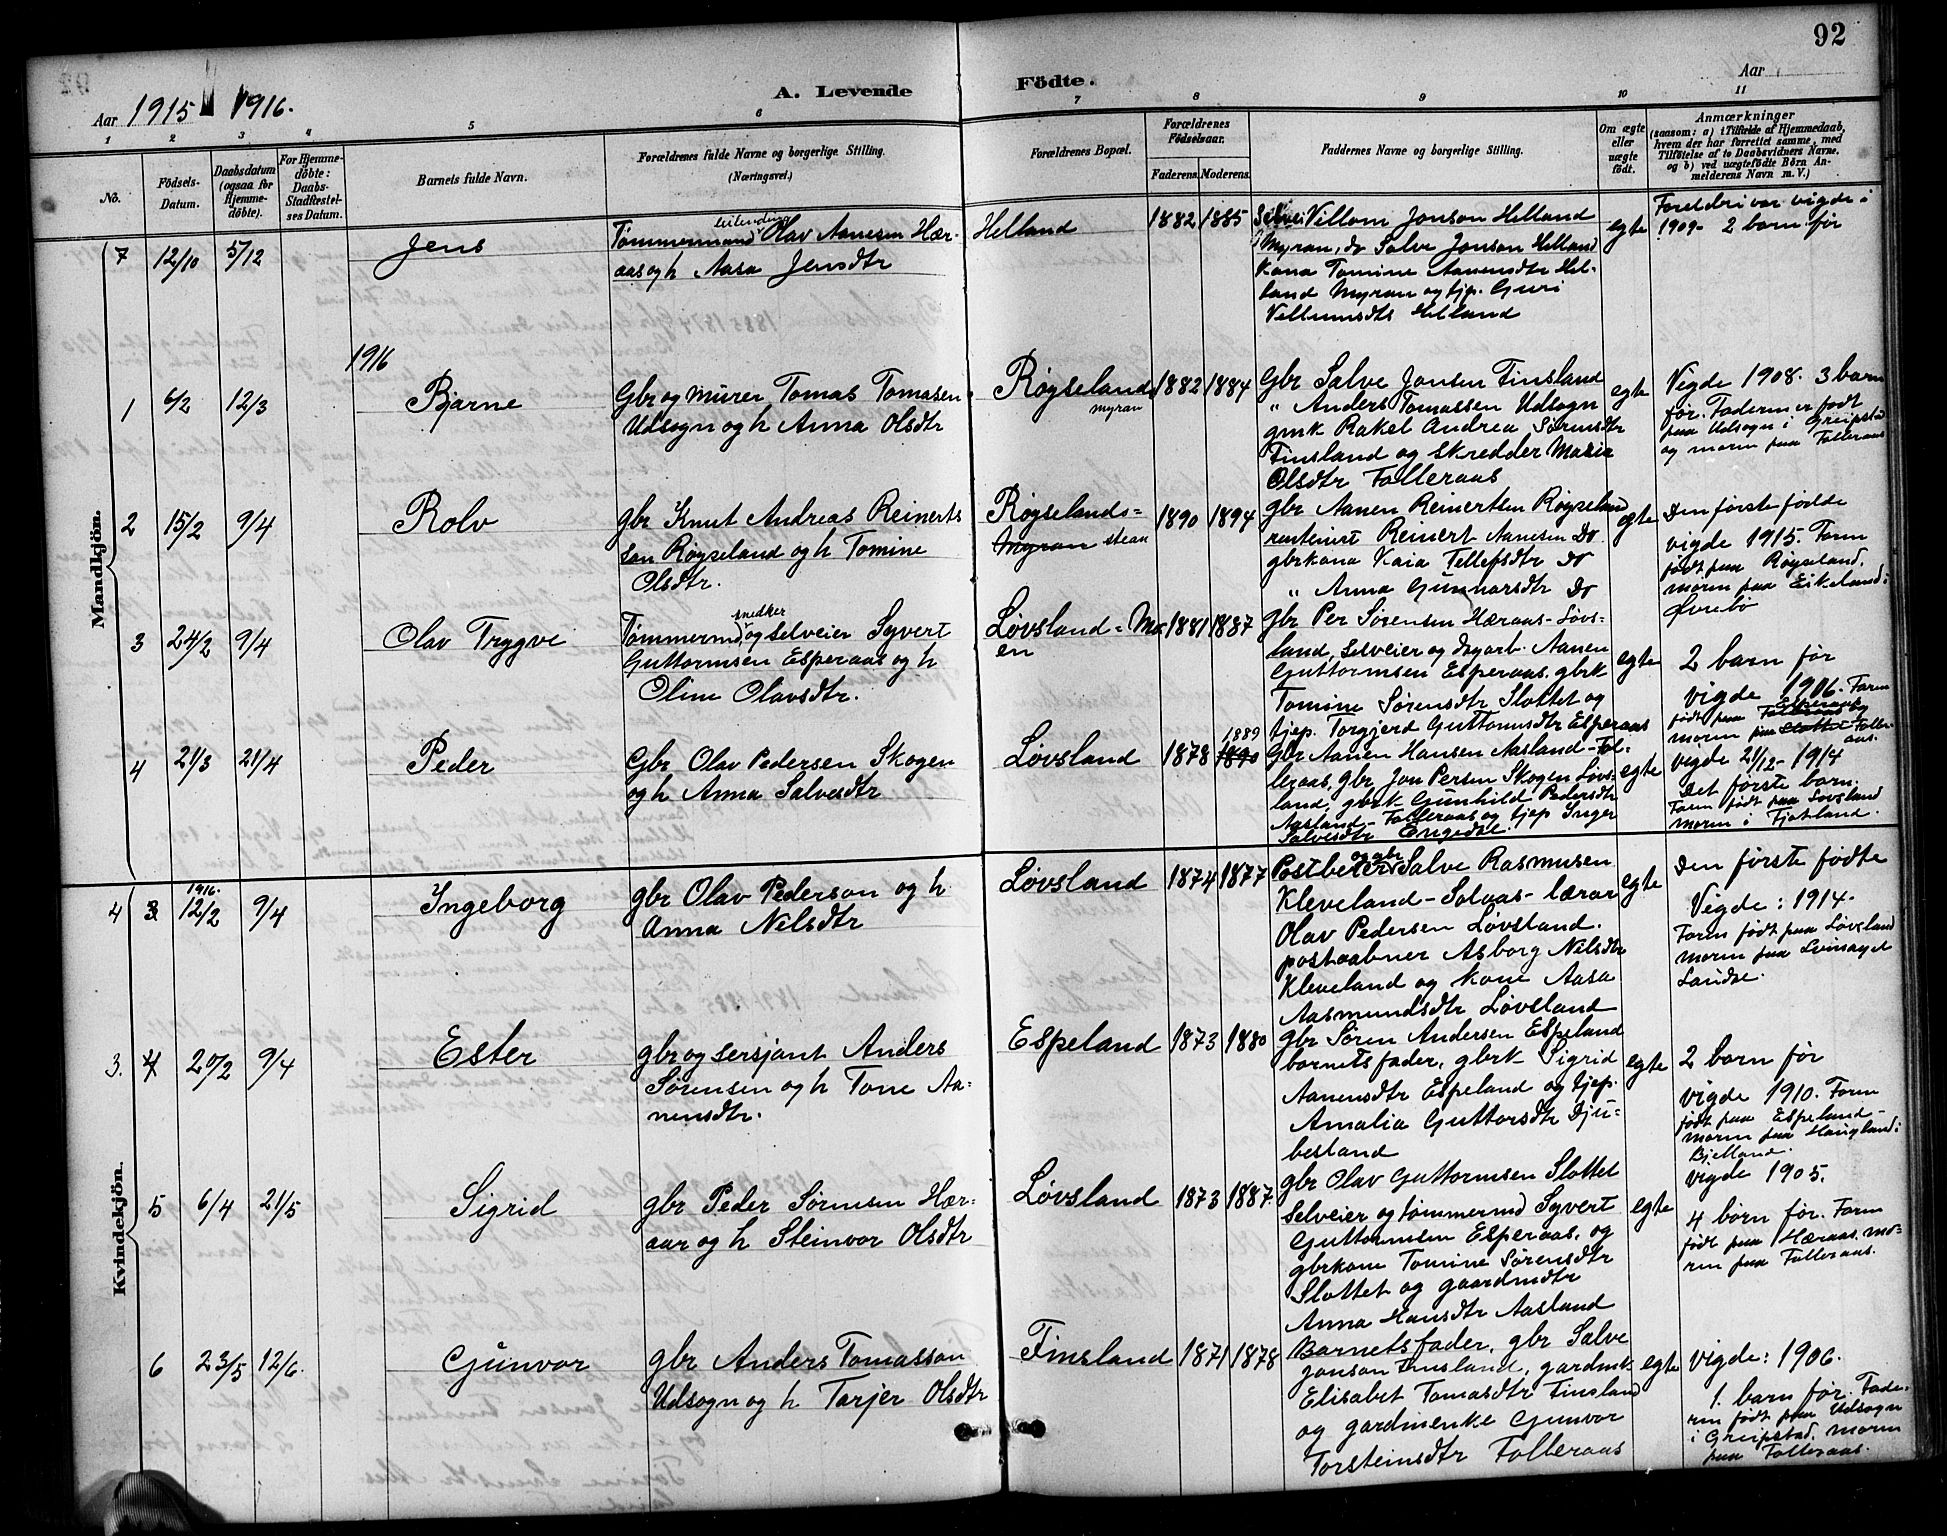 92
Aar 1915 1916.
A. Levende Födte.
Aar
1 2 3 4 5 6 7 8 9 10 11
No.
Födsels-
Datum.
Daabsdatum
(ogsaa for
Hjemme-
döbte).
For Hjemme-
döbte:
Daabs-
Stadfæstel-
ses Datum.
Barnets fulde Navn.
Forældrenes fulde Navne og borgerlige Stilling.
(Næringsvei.)
Forældrenes Bopæl.
Forældrenes
Födselsaar.
Faderens. Moderens.
Faddernes Navne og borgerlige Stilling.
Om ægte
eller
uægte
födt.
Anmærkninger
(saasom: a) i Tilfælde af Hjemmedaab,
hvem der har forrettet samme, med
Tilföielse af to Daabsvidners Navne,
og b) ved uægtefödte Börn An-
melderens Navn m. V.)
Mandkjön.
7 12/10 5/12
Jens
Tømmermand Olav Aanesen Hær-
aas og h Aasa Jensdtr
Helland
1882 1885
Villom Jonson Helland
Myran, do Salve Jonson Helland
Kona Tomine Aanensdtr Hel-
land Myran og tjp. Guri
Villumsdtr Helland
egte
Foreldri var vigde i
1909- 2 barn før
1916
1 6/2 12/3
Bjarne
Gbr og murer Tomas Tomasen
Udsogn og h Anna Olsdtr
Røyseland
myran
1882 1884
Gbr Salve Jonsen Finsland
" Anders Tomassen Udsogn
gmk Rakel Andrea Sørensdtr
Finsland og skredder Maria
Olsdtr Falleraas
egte
Vigde 1908. 3 barn
før. Faderen er født
paa Udsogn i Greipstad
og morin paa Falleraas
2 15/2 9/4
Rolv
gbr Knut Andreas Reinerts
son Røyseland og h Tomine
Olsdtr.
Røyselands=
Myran steau
1890 1894
gbr Aanen Reinertsen Røyseland
rentenist Reinert Aanesen Do
gbrkona Kaia Tellefsdtr do
" Anna Gunnarsdtr Do
egte
Den første fødde
vigde 1915. Farin
født paa Røyseland,
morin paa Eikeland i
Øvrebø
3 24/2 9/4
Olav Trygve
snedker
Tømmermd og selveier Syvert
Guttormsen Esperaas og h
Oline Olavsdtr.
Løvsland = Mo
en
1881 1887
gbr Per Sørensen Hæraas-Løvs-
land, selveier og dagarb. Aanen
Guttormsen Esperaas, gbrk
Tomine Sørensdtr Slottet og
tjep. Torgjerd Guttormsdtr Esperaas
egte
2 barn før
vigde 1906. Farin
født paa Esperaas
morin paa Slottet Falle-
aas.
4 21/3 21/4
Peder
Gbr Olav Pedersen Skogen
og h Anna Salvesdtr
Løvsland
1889
1878 1890
Gbr Aanen Hansen Aasland-Fal-
leraas, gbr Jon Persen Skogen Løvs-
land, gbrk Gunhild Pedersdtr
Aasland-Falleraas og tjep Inger
Salvesdtr Engedse.
egte
vigde 21/12-1914
Det første barn.
Farin født paa Løvsland
morin i Fjotland.
Kvindekjön.
1916.
4 3 12/2 9/4
Ingeborg
gbr Olav Pederson og h
Anna Nilsdtr
Løvsland
1874 1877
og gbr
Postberer Salve Rasmusen
Kleveland-Solaas-lærar
Olav Pedersen Løvsland.
postaabner Asborg Nilsdtr
Kleveland og kone Aasa
Aasmundsdtr Løvsland
egte
Den første fødte
Vigde: 1914-
Farin født paa Løvsland
morin paa
3. 4 20/2 9/4
Ester
gbr og sersjant Anders
Sørensen og h Tone Aa=
nensdtr.
Espeland
1873 1880
gbr Søren Andersen Espeland
barnets fader, gbrk Sigrid
Aanensdtr Espeland og tjep.
Amalia Guttorsdtr Dju-
besland
egte
2 barn før
vigde 1910. Farin
født paa Espeland-
morin paa Haugland i
Bjelland.
5 6/4 21/5
Sigrid
gbr Peder Sørnsen Hær=
aar og h Steinvor Olsdtr
Løvsland
1873 1887
gbr Olav Guttormsen Slottet
selveier og tømmermd Syvert
Guttormsen Esperaas, og
gbrkone Tomine Sørensdtr
Slottet og gaardmdtr
Anna Hansdtr Aasland
egte
vigde 1905.
4 børn før. Farin
født paa Hæraas, mo-
rin paa Falleraas.
6 23/5 12/6.
Gunvor
gbr Anders Tomasson
Udsogn og h Tarjer Olsdtr
Finsland
1871 1878
Barnets fader, gbr Salve
Jonson Finsland, gardmk
Elisabet Tomasdtr Finsland
og gardmenke Gunvor
Torsteinsdtr Falleraas
egte
vigde: 1906.
1. barn før. Fade-
rin født paa Udsogn
i Greipstad, morin
paa Falleraas.